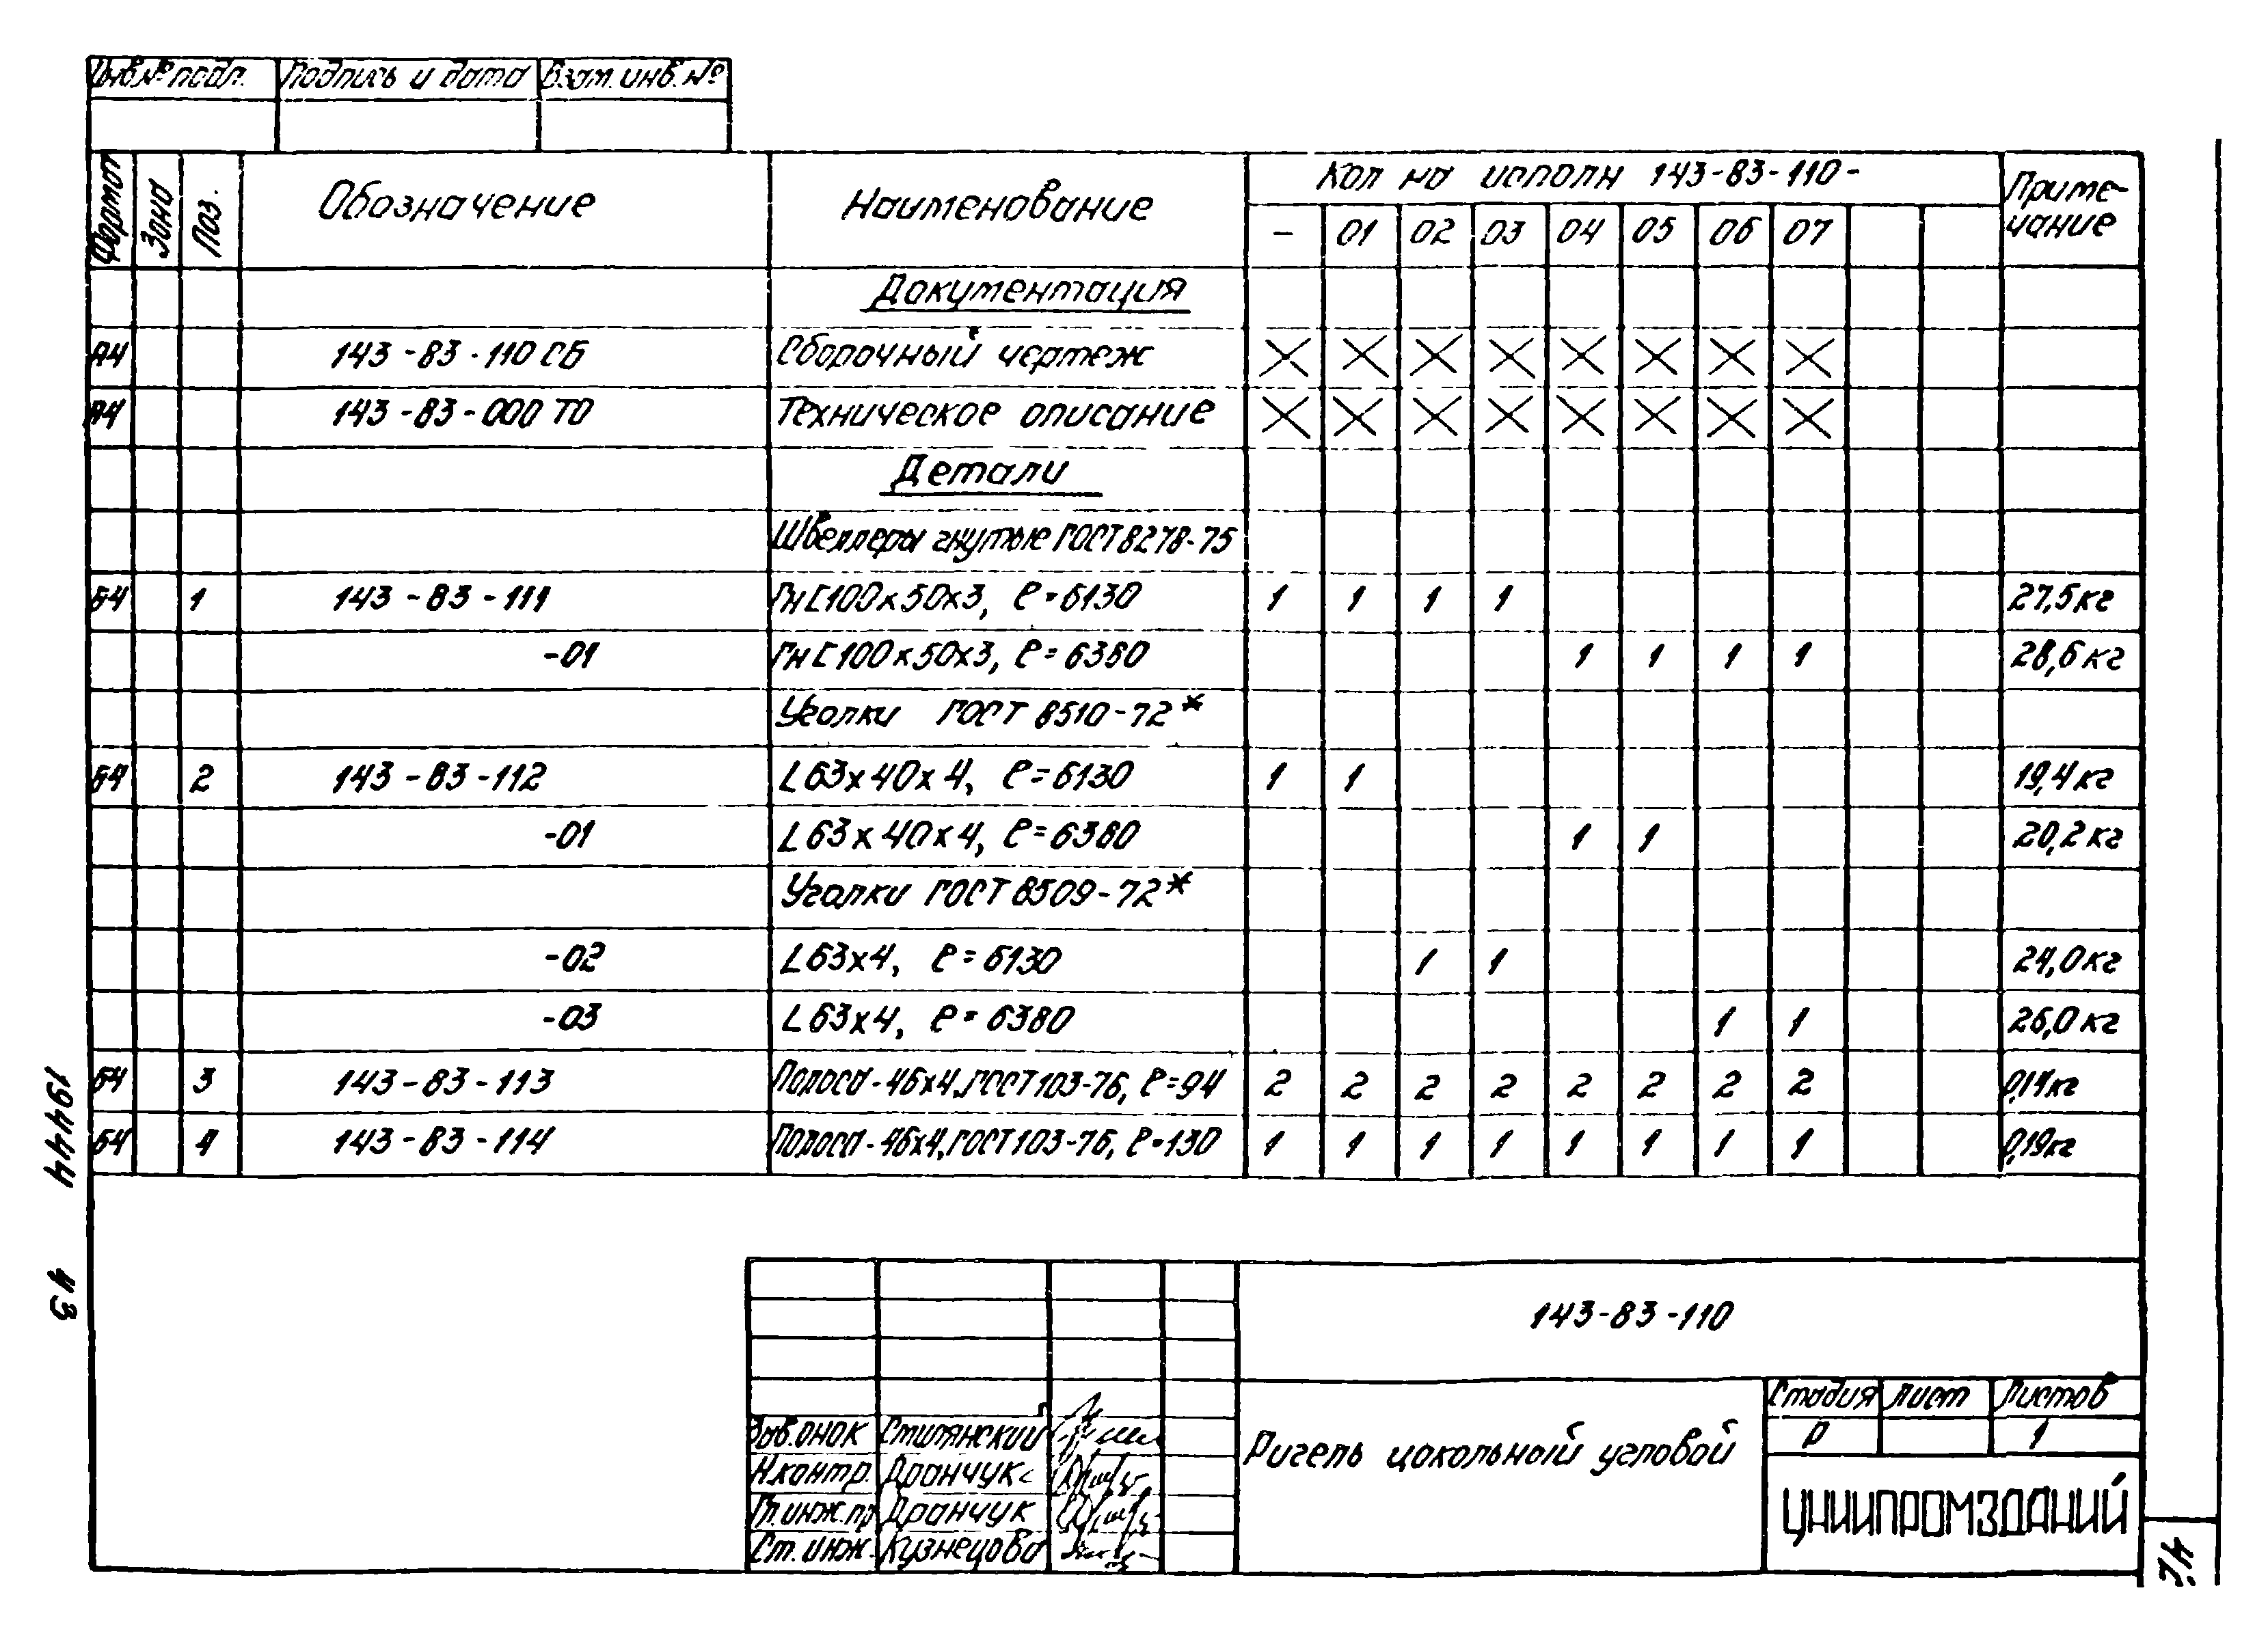 Инв.№ подл. Подпись и дата Взам. инв. №
Формат Зона Поз. Обозначение Наименование Кол на исполн 143-83-110- Приме-
чание
- 01 02 03 04 05 06 07
Документация
А4 143-83-110 СБ Сборочный чертеж X X X X X X X X
А4 143-83-000 ТО Техническое описание X X X X X X X X
Детали
Швеллеры гнутые ГОСТ 8278-75
Б4 1 143-83-111 Гн С100х50х3, ℓ=6130 1 1 1 1 27,5кг
-01 Гн С100х50х3, ℓ=6380 1 1 1 1 28,6кг
Уголки ГОСТ 8510-72*
Б4 2 143-83-112 L63х40х4, ℓ=6130 1 1 19,4кг
-01 L63х40х4, ℓ=6380 1 1 20,2кг
Уголки ГОСТ 8509-72*
-02 L63х4, ℓ=6130 1 1 24,0кг
-03 L63х4, ℓ=6380 1 1 26,0кг
Б4 3 143-83-113 Полоса-46х4,ГОСТ103-76, ℓ=94 2 2 2 2 2 2 2 2 0,14кг
Б4 4 143-83-114 Полоса-46х4,ГОСТ103-76, ℓ=130 1 1 1 1 1 1 1 1 0,19кг
19444 43
143-83-110
Зав.ОНОК
Н.контр. Дранчук
Гл.инж.пр Дранчук
Ст.инж. Кузнецова
Ригель цокольный угловой
Стадия Лист Листов
Р 1
ЦНИИПРОМЗДАНИЙ
42